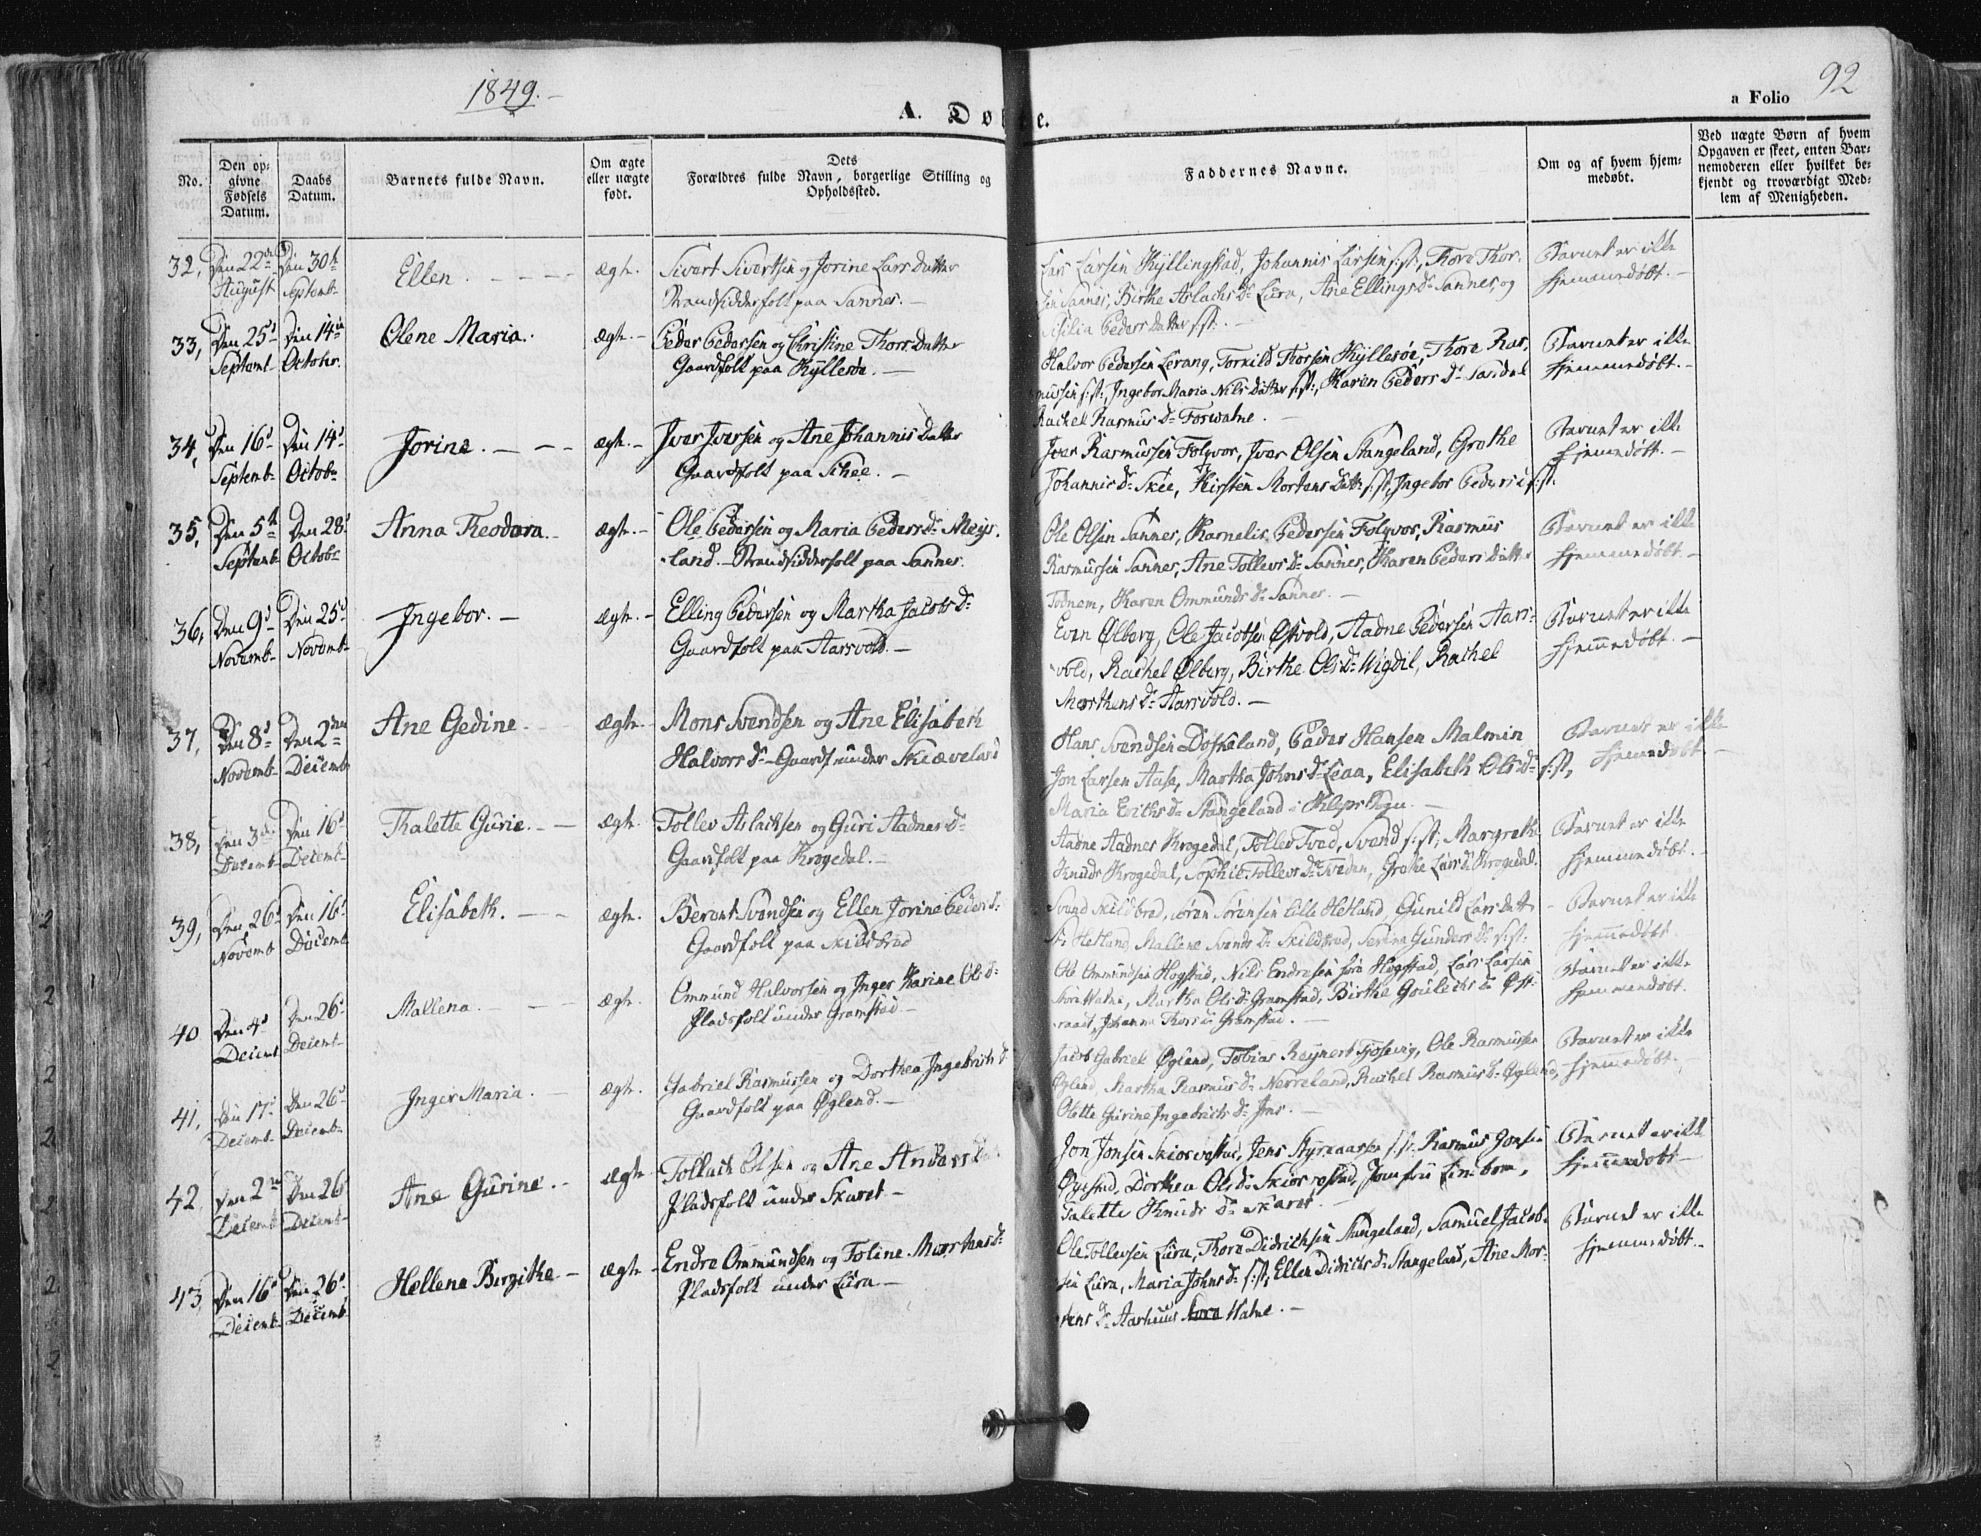 1849.
92
a Folio
A. Døbte.
No.
Den op-
givne
Fødsels
Datum.
Daabs
Datum.
Barnets fulde Navn.
Om ægte
eller uægte
født.
Dets
Forældres fulde Navn, borgerlige Stilling og
Opholdssted.
Faddernes Navne.
Om og af hvem hjem-
medøbt.
Ved uægte Børn af hvem
Opgaven er skeet, enten Bar-
nemoderen eller hvilket be-
kjendt og troværdigt Med-
lem af Menigheden.
32, Den 22de Den 30te Ellen. ægte. Sivert Sivertsen og Jorine Lars Datter
August Septemb. Strandsidderfolk paa Sannes.
Lars Larsen Kyllingstad, Johannis Larsen s:st:, Thore Thor-
sen Sannes, Birthe Aslachs Dr Lura, Ane Ellings Dr Sannes, og
Sisilia Peders Datter s:st:
Barnet er ikke
hjemmedøbt.
33, Den 25d Den 14de Olene Maria. ægte. Peder Pedersen og Christine Thors Datter
Septemb October. Gaardfolk paa Kyllesøe.
Halvor Pedersen Lerang, Torkild Thorsen Kyllesøe, Thore Ras-
mussen s:st:, Ingebor Maria Nils Datter s:st:, Karen Peders Dr Sandal
Rachel Rasmus Dr Forswatne.
Barnet er ikke
hjemmedøbt.
34, Den 16d Den 14d Jorine. ægte. Iver Iversen og Ane Johannis Datter
Septemb. Octob. Gaardfolk paa Schee.
Iver Rasmussen Folgvor, Iver Olsen Stangeland, Grethe
Johannis Dr Skee, Kirsten Mortens Datt. s:st:, Ingebor Peders s:st:
Barnet er ikke
hjemmedøbt.
35, Den 5te Den 28d Anna Theodora. ægte. Ole Pedersen og Maria Peders Dr Meys-
Septemb Octob. land. Strandsidderfolk paa Sannes.
Ole Olsen Sannes, Kornelis Pedersen Folgvor, Rasmus
Rasmussen Sannes, Ane Tollevs Dr Sannes, Karen Peders Datter
Todnem, Karen Ommunds Dr Sannes.
Barnet er ikke
hjemmedøbt.
36, Den 9d Den 25d Ingebor. ægte. Elling Pedersen og Martha Jacobs Dr
Novemb. Novemb. Gaardfolk paa Aarsvold.
Even Ølberg, Ole Jacobsen Østvold, Aadne Pedersen Aars-
vold, Rachel Ølberg, Birthe Ols Dr Wigdil, Rachel
Morthens Dr Aarsvold.
Barnet er ikke
hjemmedøbt.
37, Den 8d Den 2den Ane Gedine. ægte. Mons Svendsen og Ane Elisabeth
Novemb. Decemb Halvors Dr Gaardf. under Skiæveland
Hans Svendsen Doskeland, Peder Hansen Malmin
Jon Larsen Aase, Martha Johns Dr Leaa, Elisabeth Ols Dr s:st,
Maria Eriks Dr Stangeland i Kleps Sogn.
Barnet er ikke
hjemmedøbt.
38, Den 3die Den 16d Thalette Gurie. ægte. Tollev Aslachsen og Guri Aadnes Dr
Decemb Decemb. Gaardfolk paa Krogedal.
Aadne Aadnes Krogedal, Tollev Tved, Svend s:st:, Margrethe
Knuds Krogedal, Sophie Tollevs Dr Tveden, Grethe Lars Dr Krogedal.
Barnet er ikke
hjemmedøbt.
39, Den 26d Den 16d Elisabeth. ægte. Berent Svendsen og Ellen Jorine Peders D:
Novemb Decemb. Gaardfolk paa Skildbred
Svend Skildbred, Søren Sørensen Lille Hetland, Gunild Lars Datt.
Hetland, Mallene Svends Dr Skildbred, Serina Gunders Dr s:st:
Barnet er ikke
hjemmedøbt.
40 Den 4d Den 26d Mallena. ægte. Ommund Halvorsen og Inger Karine Ols D:
Decemb Decemb. Pladsfolk under Gramstad.
Ole Ommundsen Hogstad, Nils Endresen Hogstad, Lars Larsen
Store Watne, Martha Ols Dr Gramstad, Birthe
Johanna Thors Dr Gramstad.
Barnet er ikke
hjemmedøbt.
41, Den 17d Den 26d Inger Maria. ægte. Gabriel Rasmussen og Dorthea Ingebrets D
Decemb. Decemb. Gaardfolk paa Øglend.
Jacob Gabriel Øglend, Tobias Reynert Tjosevig, Ole Rasmussen
Øglend, Martha Rasmus Dr Norreland, Rachel Rasmus Dr Øglend,
Olette Gurine Ingebrets Dr
Barnet er ikke
hjemmedøbt.
42, Den 2den Den 26 Ane Gurine. ægte. Tollack Olsen og Ane Anders Dat
Decemb Decemb. Pladsfolk under Skaret.
Jon Jonsen Skiorestad, Jens Styrcaarsen s:st: Rasmus Jonsen
Øgestad, Dorthea Ols Dr Skiorestad, Jomfru
Talette Knuds Dr Skaret.
Barnet er ikke
hjemmedøbt
43, Den 16d Den 26d Hellena Birgithe ægte. Endre Ommundsen og Toline Mortens D:
Decemb. Decemb. Pladsfolk under Lura.
Ole Tollevsen Lura, Thore Didrichsen Stangeland, Samuel Jacob-
sen Lura, Maria Johns Dr s:st:, Ellen Didrichs Dr Stangeland, Ane Mor-
tens Dr Aarhuus Watne.
Barnet er ikke
hjemmedøbt.